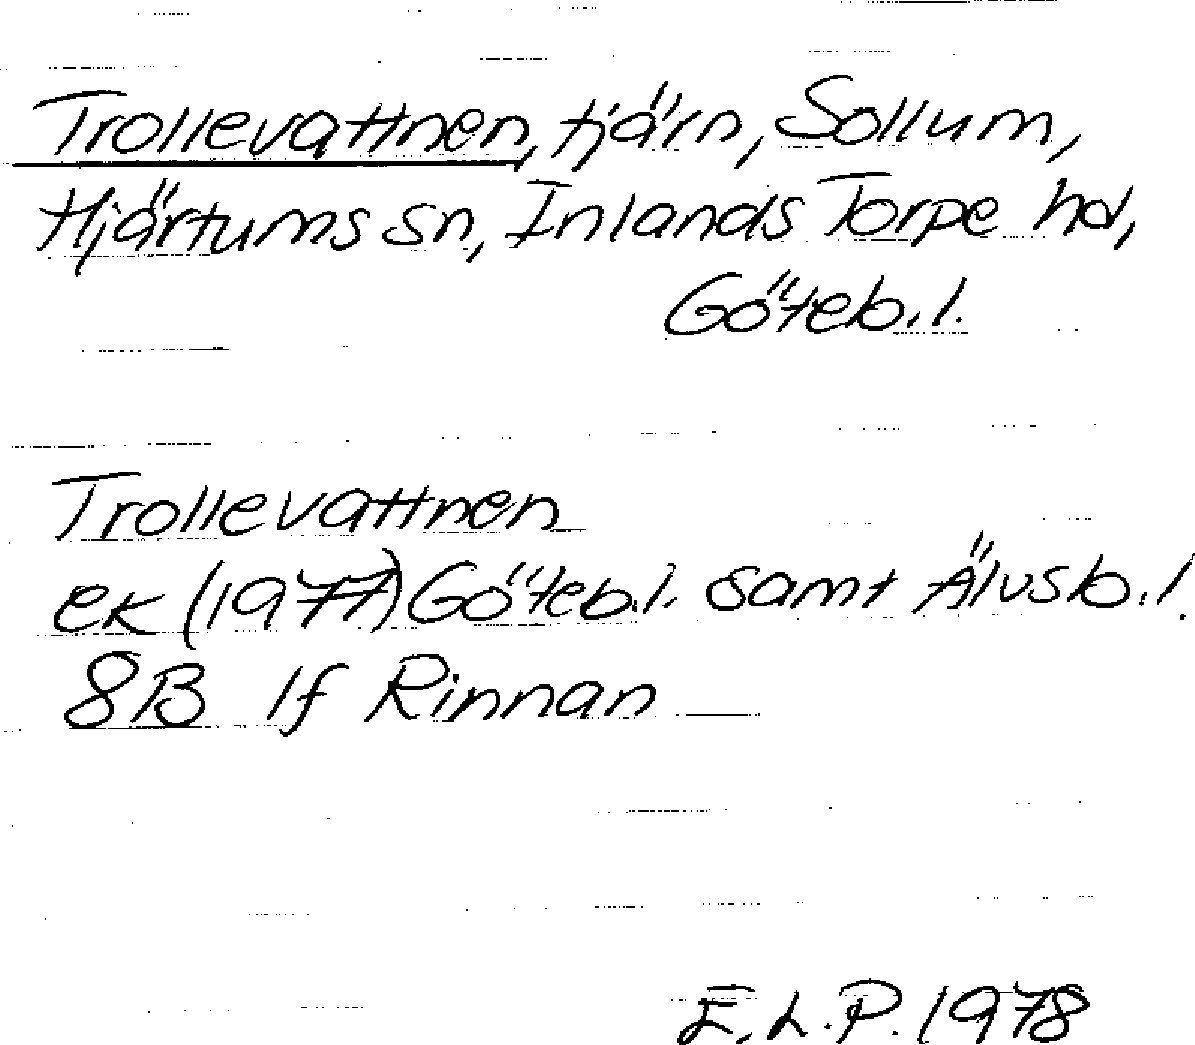 Trollevattnen, tjärn, Sollum,
Hjärtums sn, Inlands Torpe hd,
Göteb. l.
Trollevattnen
ek (1977) Göteb. l. samt Älvsb. l.
8B 1f Rinnan
E. L. P. 1978